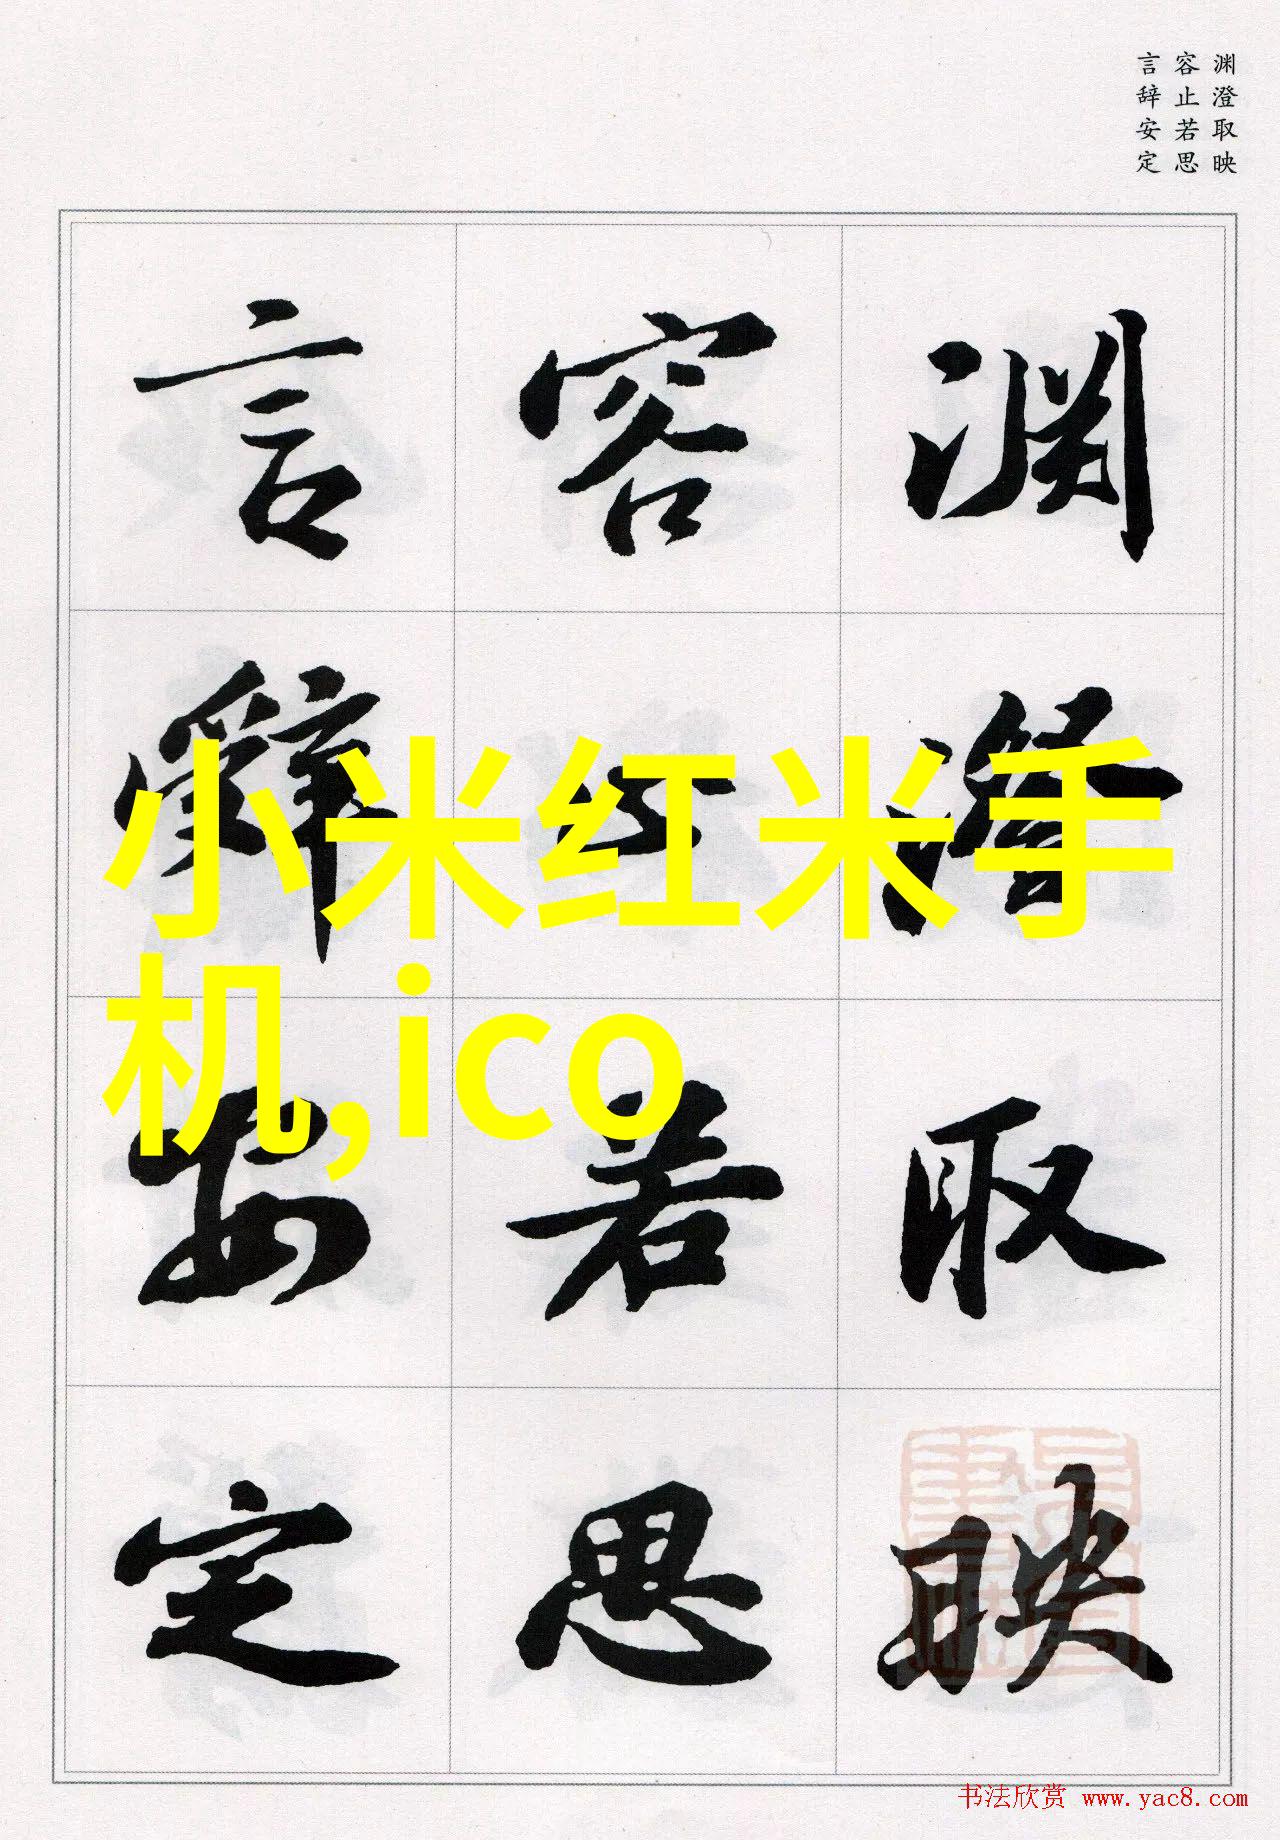 渊澄取映
容止若思
言辞安定
渊澄取映
容止若思
言辞安定
小米红米手
机,ico
书法欣赏 www.yac8.com